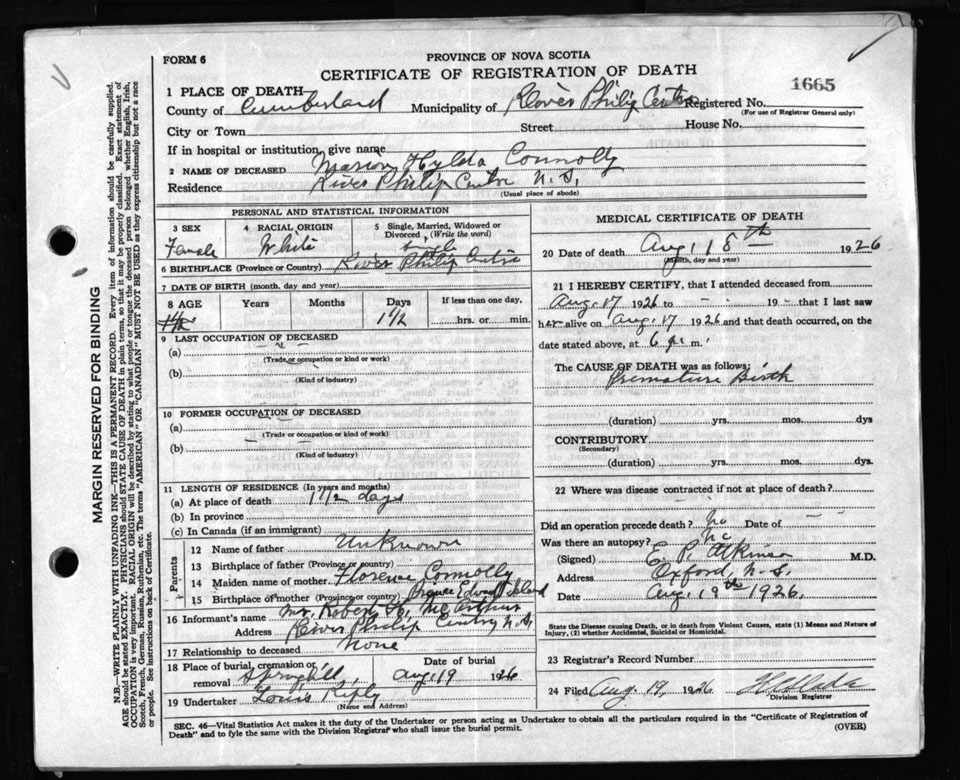 FORM 6
PROVINCE OF NOVA SCOTIA
CERTIFICATE OF REGISTRATION OF DEATH
1665
1 PLACE OF DEATH
County of Cumberland Municipality of River Philip Centre Registered No.
(For use of Registrar General only)
City or Town Street House No.
If in hospital or institution, give name
2 NAME OF DECEASED Marion Hylda Connolly
Residence River Philip Centre N.S.
(Usual place of abode)
PERSONAL AND STATISTICAL INFORMATION
3 SEX Female
4 RACIAL ORIGIN White
5 Single, Married, Widowed or Divorced (Write the word) Single
6 BIRTHPLACE (Province or Country) River Philip Centre
7 DATE OF BIRTH (month, day and year)
8 AGE Years Months Days If less than one day,
1½ 1½ hrs. or min.
9 LAST OCCUPATION OF DECEASED
(a)
(Trade or occupation or kind or work)
(b)
(Kind of industry)
10 FORMER OCCUPATION OF DECEASED
(a)
(Trade or occupation or kind of work)
(b)
(Kind of industry)
11 LENGTH OF RESIDENCE (In years and months)
(a) At place of death 1½ days
(b) In province
(c) In Canada (if an immigrant)
Parents
12 Name of father Unknown
13 Birthplace of father (Province or country)
14 Maiden name of mother Florence Connolly
15 Birthplace of mother (Province or country) Prince Edward Island
16 Informant's name Mr. Robert McArthur
Address River Philip Centre N.S.
17 Relationship to deceased None
18 Place of burial, cremation or removal Springhill Date of burial Aug 19 1926
19 Undertaker Louis Ripley
(Name and Address)
MEDICAL CERTIFICATE OF DEATH
20 Date of death Aug 18th 1926
(Month, day and year)
21 I HEREBY CERTIFY, that I attended deceased from
Aug. 17 1926 to - - 19 - that I last saw
her alive on Aug. 17 1926 and that death occurred, on the
date stated above, at 6 p.m.
The CAUSE OF DEATH was as follows:
Premature Birth
(duration) yrs. mos. dys
CONTRIBUTORY
(Secondary)
(duration) yrs. mos. dys.
22 Where was disease contracted if not at place of death?
Did an operation precede death? No Date of - -
Was there an autopsy? No
(Signed) E. P. Atkinson M.D.
Address Oxford, N.S.
Date Aug. 19th 1926.
State the Disease causing Death, or in death from Violent Causes, state (1) Means and Nature of
Injury, (2) whether Accidental, Suicidal or Homicidal.
23 Registrar's Record Number
24 Filed Aug. 19, 1926
Division Registrar
SEC. 46—Vital Statistics Act makes it the duty of the Undertaker or person acting as Undertaker to obtain all the particulars required in the "Certificate of Registration of
Death" and to fyle the same with the Division Registrar who shall issue the burial permit. (OVER)
MARGIN RESERVED FOR BINDING
N.B.—WRITE PLAINLY WITH UNFADING INK—THIS IS A PERMANENT RECORD. Every item of information should be carefully supplied.
AGE should be stated EXACTLY. PHYSICIANS should STATE CAUSE OF DEATH in plain terms, so that it may be properly classified. Exact statement of
OCCUPATION is very important. RACIAL ORIGIN will be described by stating to what people or tongue the deceased person belonged whether English, Irish,
Scotch, French, German, Russian, Ruthenian, etc. The terms "AMERICAN" or "CANADIAN" MUST NOT BE USED as they express citizenship but not a race
or people. See instructions on back of Certificate.